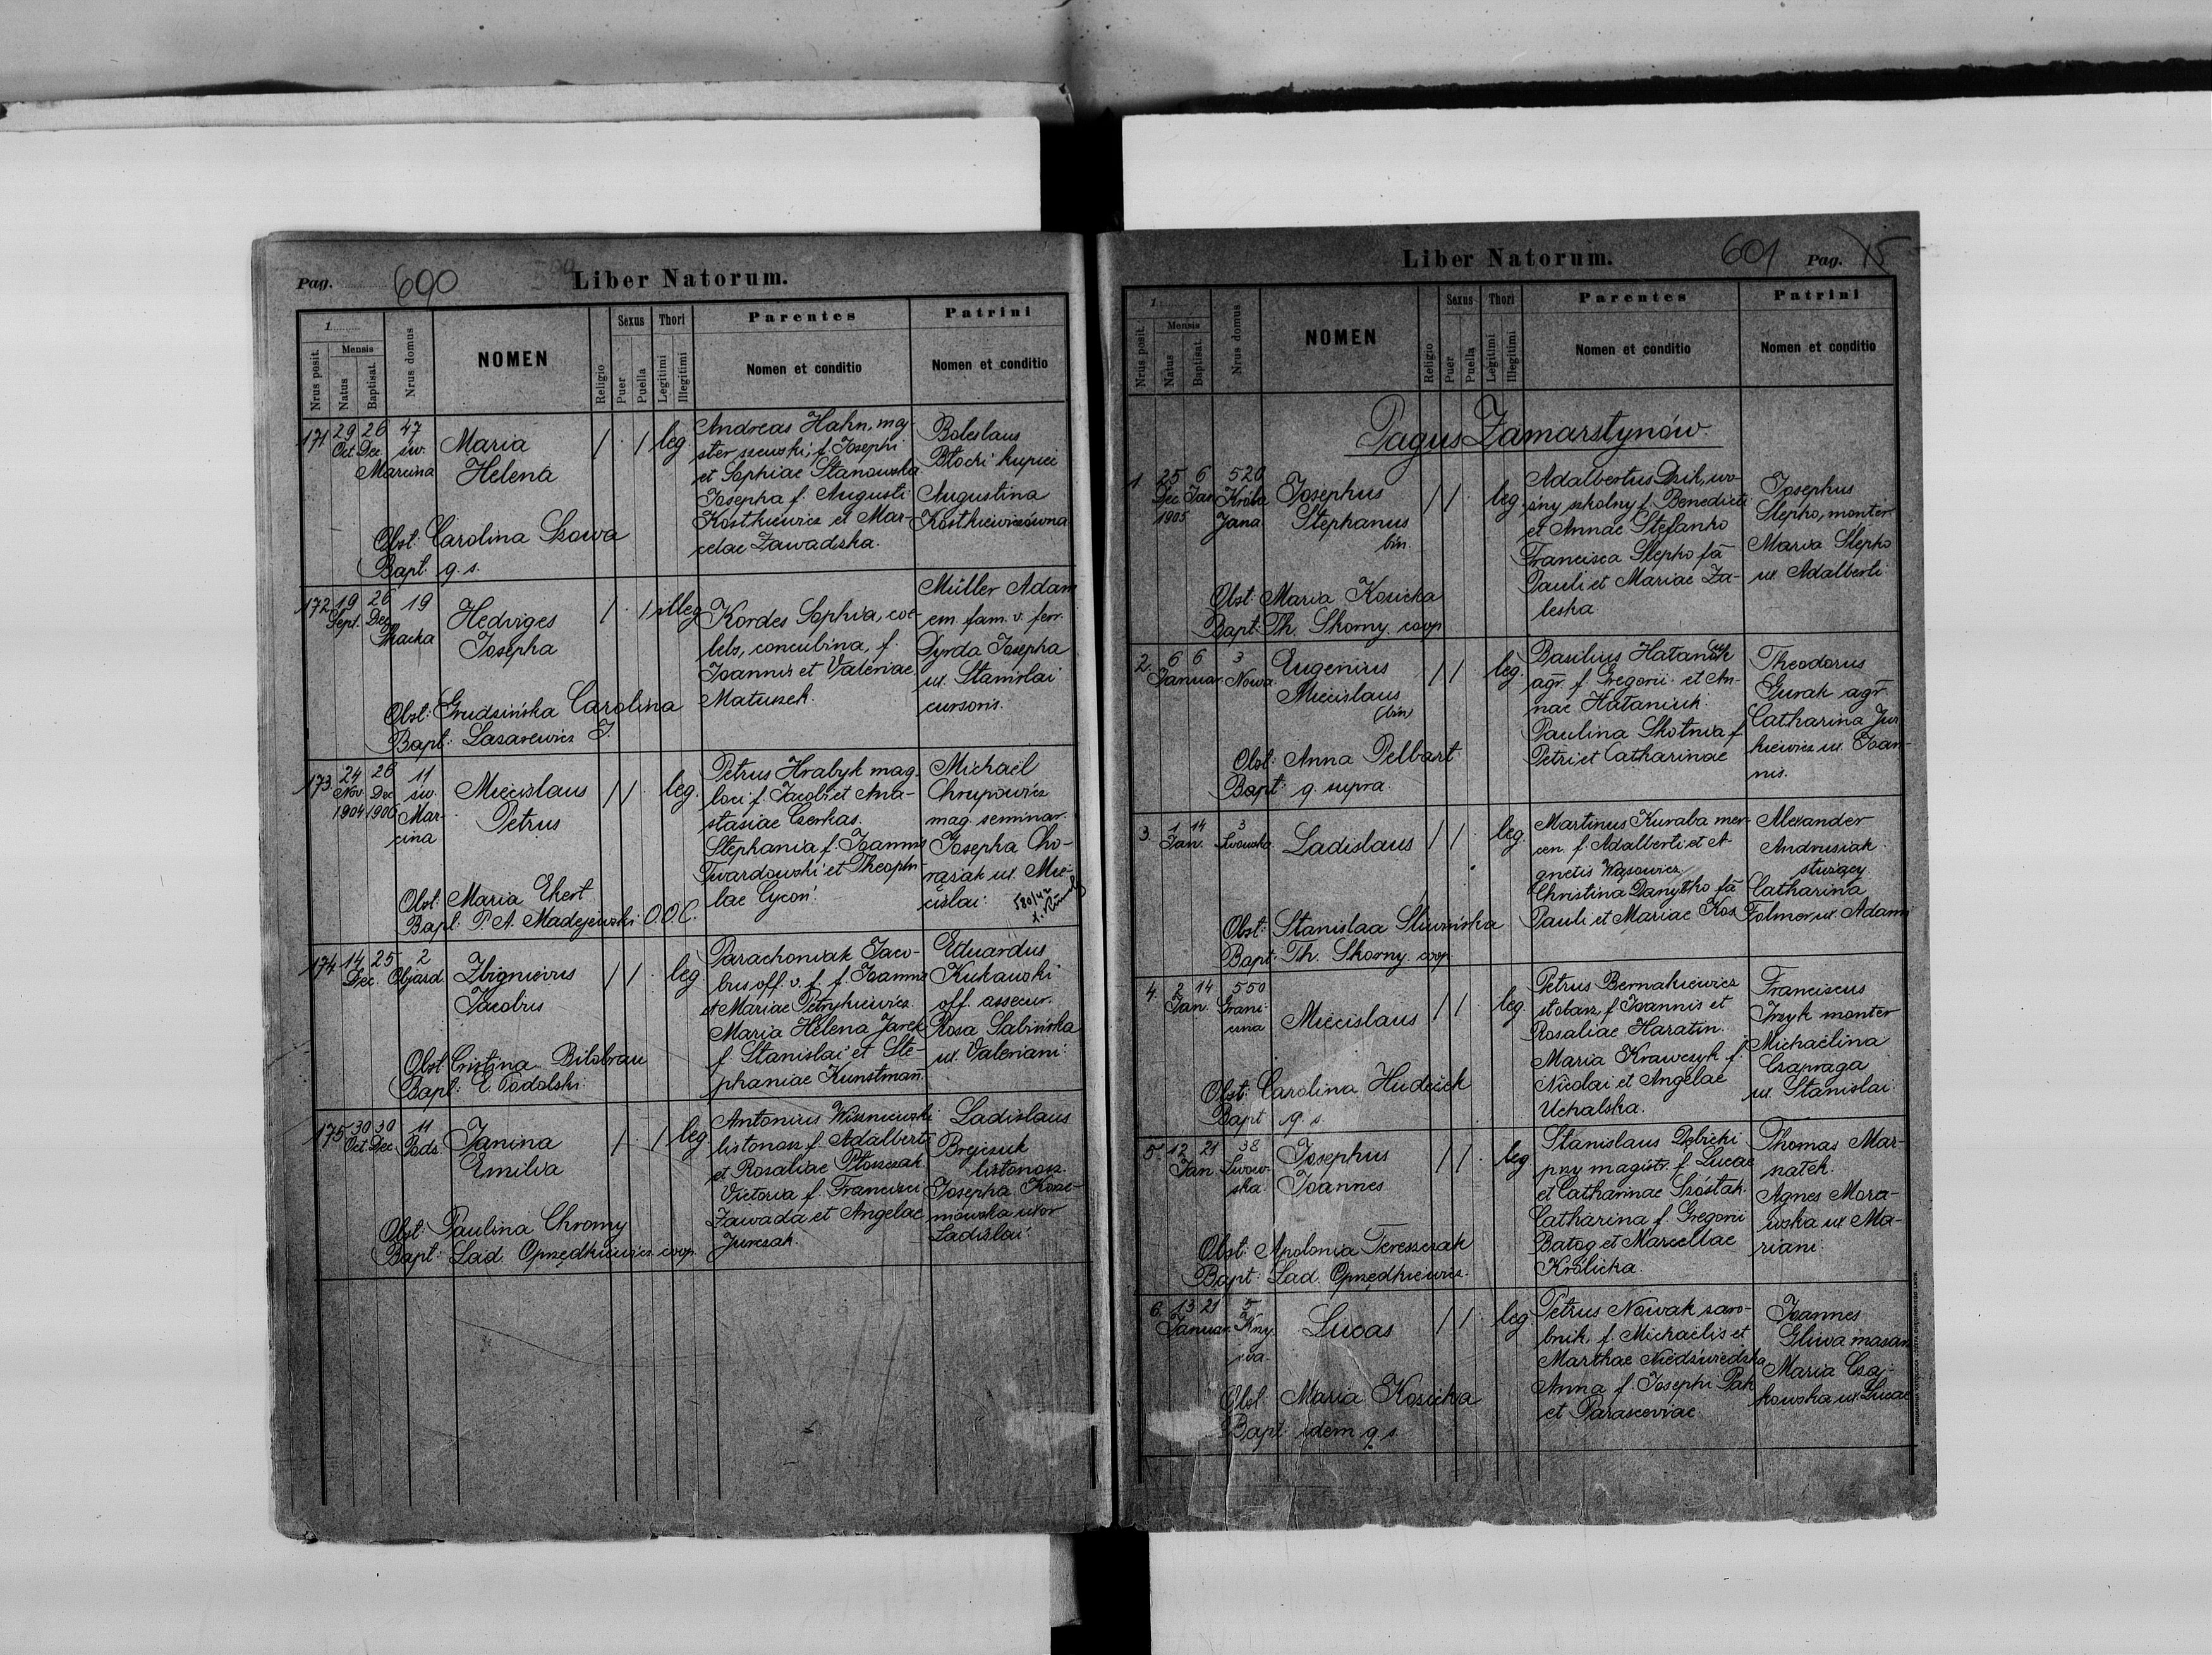 Pag. 690 Liber Natorum.
1
Nrus posit.
Mensis
Natus
Baptisat.
Nrus domus
NOMEN
Religio
Sexus
Puer
Puella
Thori
Legitimi
Illegitimi
Parentes
Nomen et conditio
Patrini
Nomen et conditio
171 29 Oct. 26 Dec. 47 św. Marcina
Maria
Helena
leg.
Andreas Hahn, maj-
ster szewski, f. Josephi
et Sophiae Stanowska
Josepha f. Augusti
Kostkiewicz et Mar-
celae Zawadzka.
Boleslaus
Błocki kupiec
Augustina
Kostkiewiczówna
Obst: Carolina Szowa
Bapt. q. s.
172 19 Sept. 26 Dec. 19
Hedviges
Josepha
illeg
Kordes Sophia, coe-
lebs, concubina, f.
Joannis et Valeriae
Matuszek.
Müller Adam
em. fam. v. ferr.
Dyrda Josepha
ux. Stanislai
cursoris.
Obst: Grudzińska Carolina
Bapt: Lazarewicz J.
173 24 Nov. 1904 26 Dec 1906 11 św. Mar-
cina
Miecislaus
Petrus
leg.
Petrus Hrabyk mag.
loci f. Jacobi et Ana-
stasiae Czerkas.
Stephania f. Joannis
Twardowski et Theophi-
lae Cycoń.
Michaël
Chrupowicz
mag. seminar.
Josepha Cho-
rązak ux. Mie-
cislai
580/42
Obst: Maria Ekert
Bapt: P. A. Madejewski O.O.C.
174 14 Dec. 25 2 Objazd.
Zbignievus
Jacobus
leg.
Parachoniak Jaco-
bus off. v. f. f. Joannis
et Mariae Petrykiewicz.
Maria Helena Jarek
f. Stanislai et Ste-
phaniae Kunstmann.
Eduardus
Kukawski
off. assecur.
Rosa Sabińska
ux. Valeriani
Obst: Cristina Bilobrau
Bapt: E. Podolski
175 30 Oct. 30 Dec 11 Pods.
Janina
Emilia
leg
Antonius Wiszniewski
listonosz f. Adalberti
et Rosaliae Ptoszczak
Victoria f. Francisci
Zawada et Angelae
Jurczak.
Ladislaus
Brejczuk
listonosz.
Josepha Koze-
mówska uxor
Ladislai
Obst: Paulina Chromy
Bapt: Lad. Opzędkiewicz coop.
Liber Natorum. 601 Pag. 15
1
Nrus posit.
Mensis
Natus
Baptisat.
Nrus domus
NOMEN
Religio
Sexus
Puer
Puella
Thori
Legitimi
Illegitimi
Parentes
Nomen et conditio
Patrini
Nomen et conditio
Pagus Zamarstynów.
1 25 Dec 1905 6 Jan 520 Króla
Jana
Josephus
Stephanus
bin.
leg.
Adalbertus Dzik, wo-
źny szkolny f. Benedicti
et Annae Stefanko
Francisca Slepko fa
Pauli et Mariae Za-
leska
Josephus
Slepko, monter
Maria Slepko
ux Adalberti
Obst: Maria Kosicka
Bapt: Th. Skorny coop
2. 6 6 Januar. 3 Nowa
Eugenius
Miecislaus
(bin)
leg.
Basilius Hataniuk
agr. f. Gregorii et An-
nae Hataniuk.
Paulina Skotnia f
Petri et Catharinae
Theodorus
Gurak agr
Catharina Jur
kiewicz ux. Joan-
nis.
Obst: Anna Pelbart
Bapt: q. supra.
3. 1 Jan. 14 3 Lwowska
Ladislaus
leg.
Martinus Kuraba mer-
cen. f. Adalberti et A-
gnetis Wąsowicz
Christina Danyłko fa
Pauli et Mariae Kos
Alexander
Andrusiak
służący
Catharina
Folmer ux. Adami
Obst: Stanislaa Sliwińska
Bapt: Th. Skorny coop.
4. 2 Jan. 14 550 Grani-
czna
Miecislaus
leg.
Petrus Bernakiewicz
stolarz f. Joannis et
Rosaliae Haratin.
Maria Krawczyk f.
Nicolai et Angelae
Uchalska.
Franciscus
Irzyk monter
Michaëlina
Czapraga
ux. Stanislai
Obst: Carolina Hudecek
Bapt q. s.
5. 12 Jan. 21 38 Lwow-
ska.
Josephus
Joannes
leg
Stanislaus Dębicki
pny magistr. f. Lucae
et Catharinae Szóstak.
Catharina f. Gregorii
Batog et Marcellae
Królicka.
Thomas Mar-
natek.
Agnes Mora-
wska ux Ma-
riani.
Obst: Apolonia Tereszczak
Bapt: Lad. Opzędkiewicz.
6. 13 21 Januar. 5
Lucas
leg
Petrus Nowak zaro-
bnik, f. Michaëlis et
Marthae Niedźwiedzka
Anna f. Josephi Pak
et Parasceviae
Joannes
Gliwa masarz
Maria Czaj-
kowska ux Lucae
Obst: Maria Kosicka
Bapt: idem q. s.